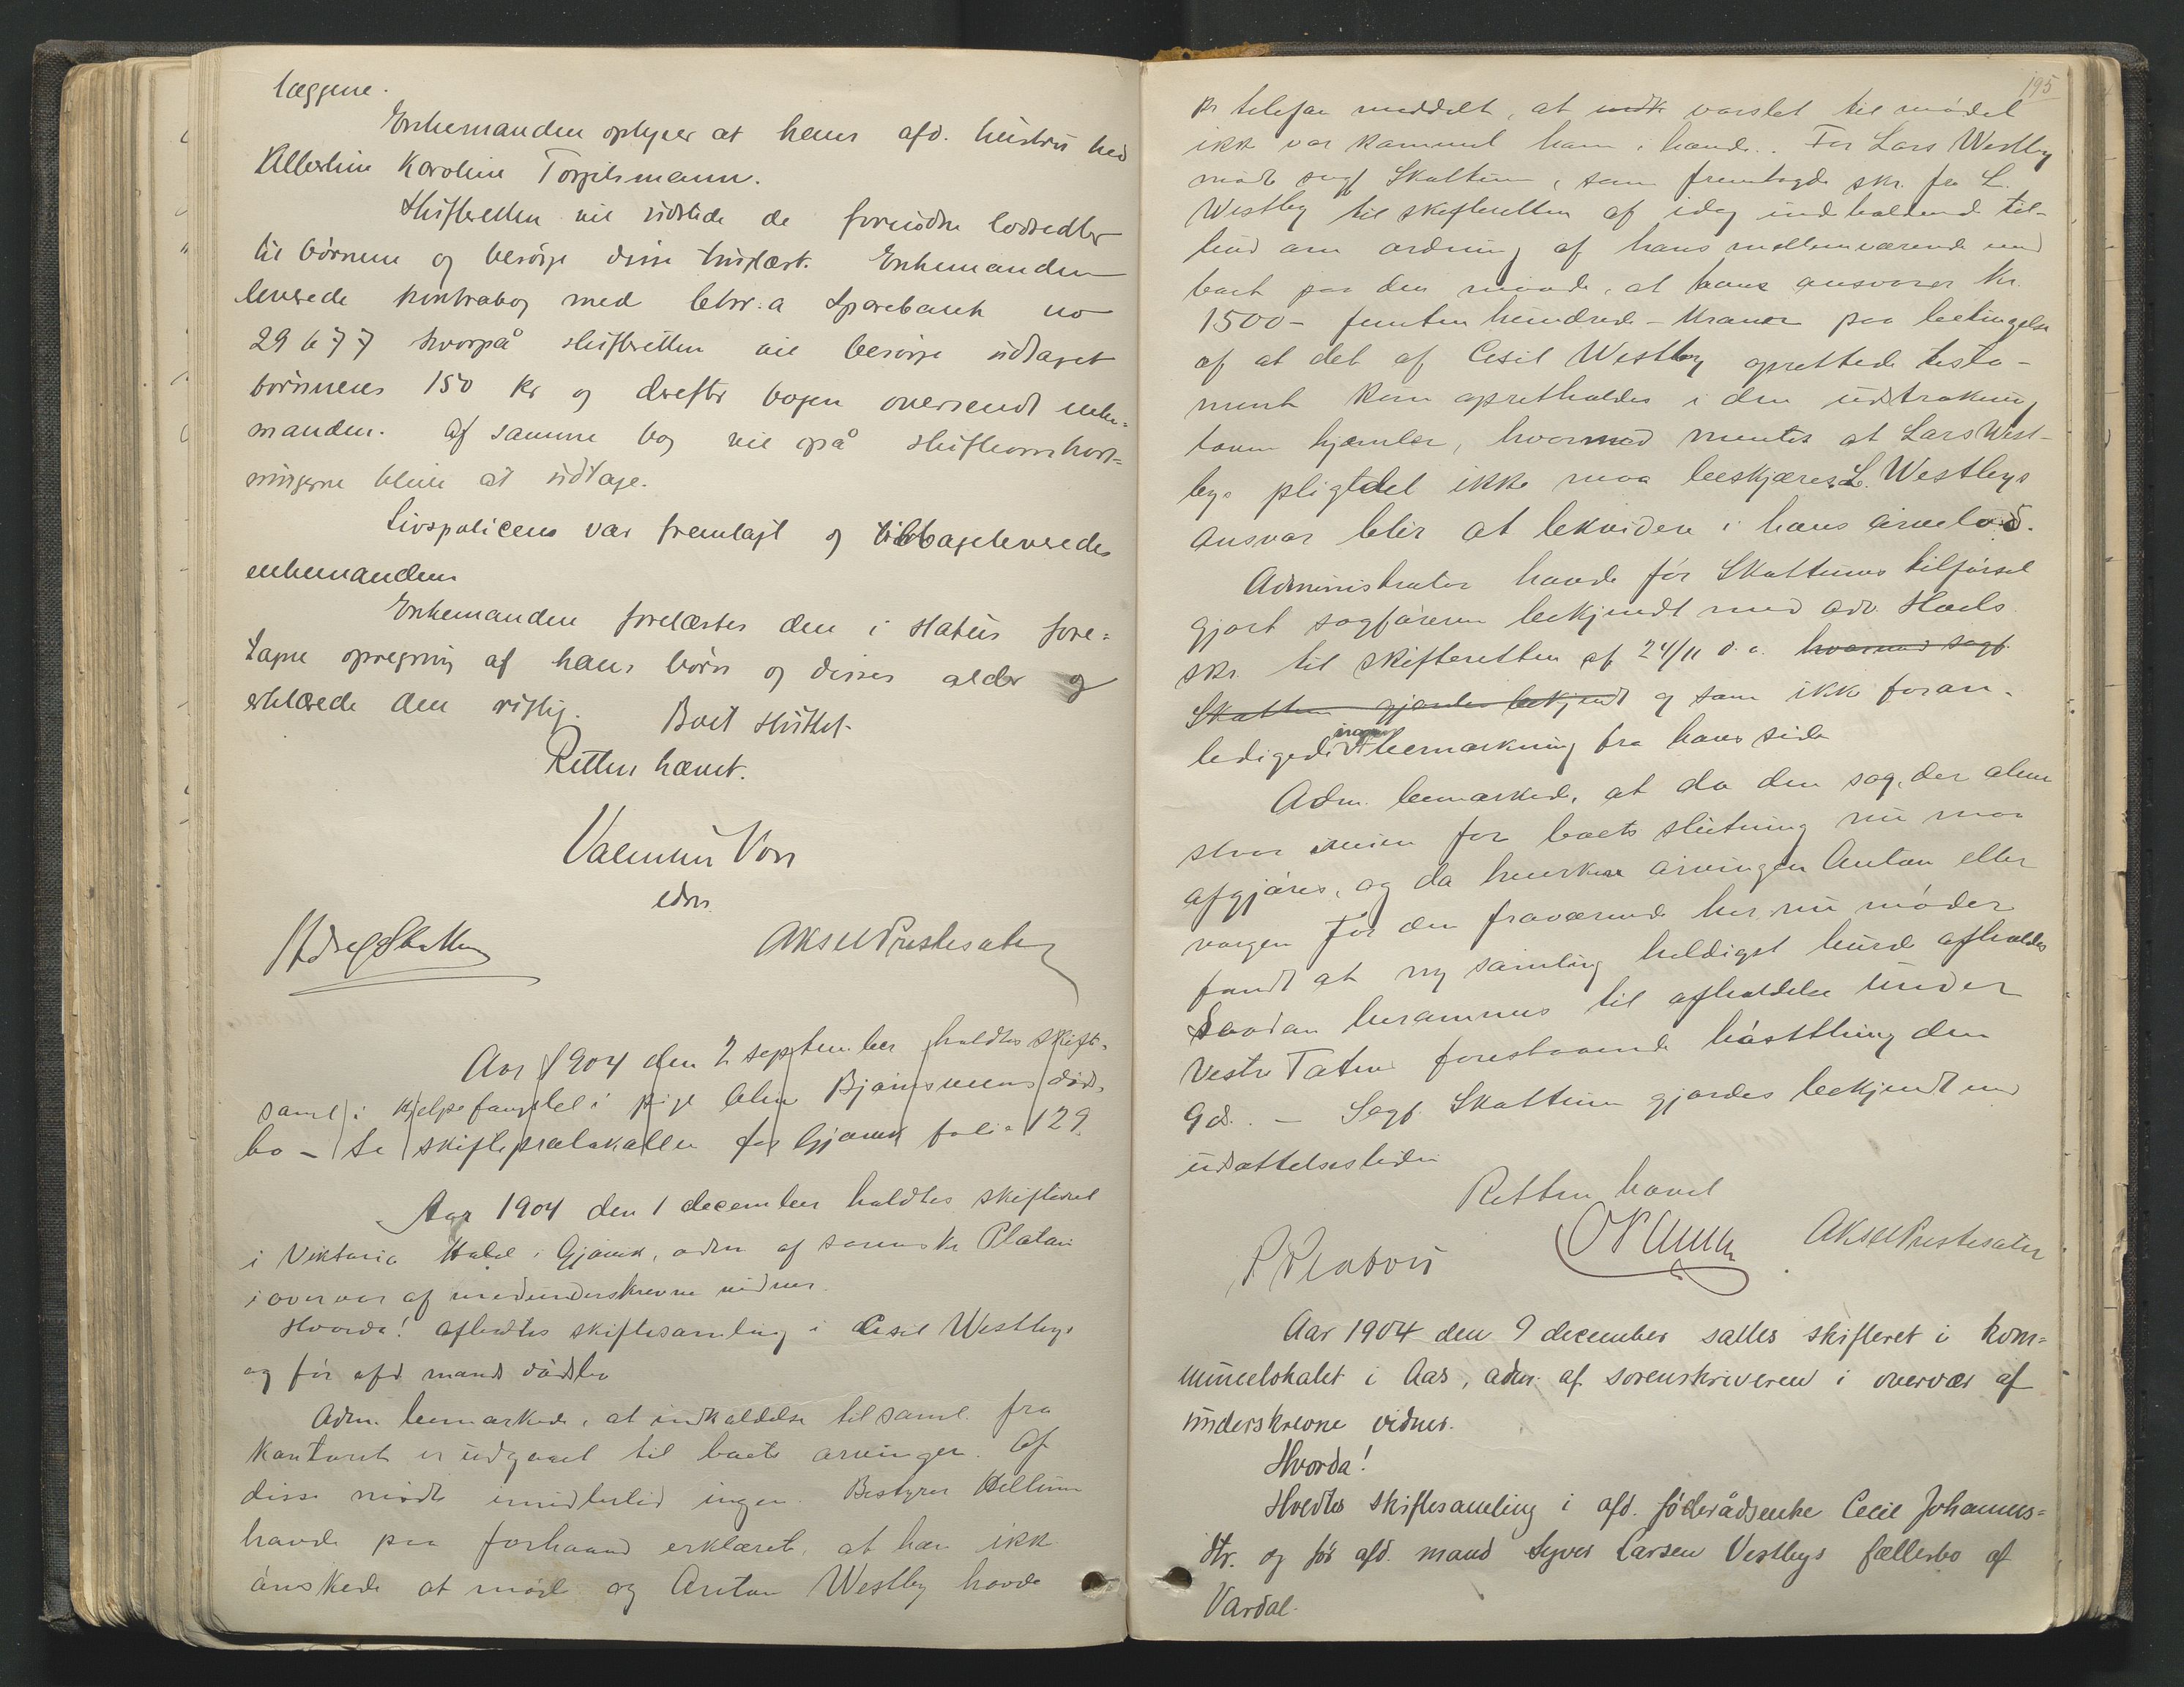 læggene.
Enkemanden oplyser at hans afd. hustru hed
Albertine Karoline Torgilsmann.
Skifteretten vil udstede de fornødne lodsedler
til børnene og besørge disse tinglæst. Enkemanden
leverede kontrabog med Sparebank no
29677 hvorpå skifteretten vil besørge udtaget
børnenes 150 kr og derefter bogen oversendt enke=
manden. Af samme bog vil også skifteomkost=
ningerne blive at udtage.
Livspolicens var fremlagt og tilbageleveredes
enkemanden
Enkemanden forelæstes den i status fore=
tagne opregning af hans børn og disses alder og
erklærede den rigtig. Boet sluttet.
Retten hævet.
Valentin Voss
edsv.
Aksel Prestesæter
Aar 1904 den 2 september holdtes skifte-
saml i i pige Bjørnsveens døds-
bo – Se skifteprotokollen for Gjøvik folio 129.
Aar 1904 den 1 december holdtes skifteret
i Viktoria Hotel i Gjøvik, adm af sorenskr Platou
i overvær af medunderskrevne vidner.
Hvorda! afholdtes skiftesamling i Cesil Westbys
og før afd. mands dødsbo
Adm. bemærkede, at indkaldelse til saml. fra
kontoret er udgaaet til boets arvinger. Af
disse mødte imidlertid ingen. Bestyrer Hellum
havde paa forhaand erklæret, at han ikke
ønskede at møde og Anton Westby havde
195
pr telefon meddelt, at indk varslet til mødet
ikke var kommet ham i hænde. For Lars Westby
mødte sagf Skattum, som fremlagde skr. fra L.
Westby til skifteretten af idag indholdende til-
bud om ordning af hans mellemværende med
boet paa den maade, at hans ansvarer kr.
1500 – femten hundrede – Kroner paa betingelse
af at det af Cesil Westby oprettede testa-
ment kun opretholdes i den udstrækning
loven hjemler, hvormed mentes at Lars West-
bys pligtdel ikke maa beskjæres. L. Westbys
ansvar blir at lekvidere i hans arvelod.
Administrator havde før Skattums tilførsel
gjort sagføreren bekjendt med adv. Hoels
skr. til skifteretten af 24/11 d.a. hvormed sagf.
Skattum gjordes bekjendt og som ikke foran-
ledigede ingen bemærkning fra hans side
Adm. bemærkede, at da den sag, der alene
staar igjen for boets slutning nu maa
afgjøres, og da hverken arvingen Anton eller
vergen for den fraværende her nu møder
fandt at ny samling heldigst burde afholdes
Saadan berammes til afholdelse under
Vestre Totens forestaaende høstthing den
9d. – Sagf. Skattum gjordes bekjendt med
udsættelsestiden
Retten hævet
Platou Aksel Prestesæter
Aar 1904 den 9 december sattes skifteret i kom=
munelokalet i Aas, adm. af sorenskriveren i overvær af
underskrevne vidner.
Hvorda!
Holdtes skiftesamling i afd. føderådsenke Cecil Johannes=
dtr. og før afd. mand Syver Larsen Vestbys fællesbo af
Vardal.